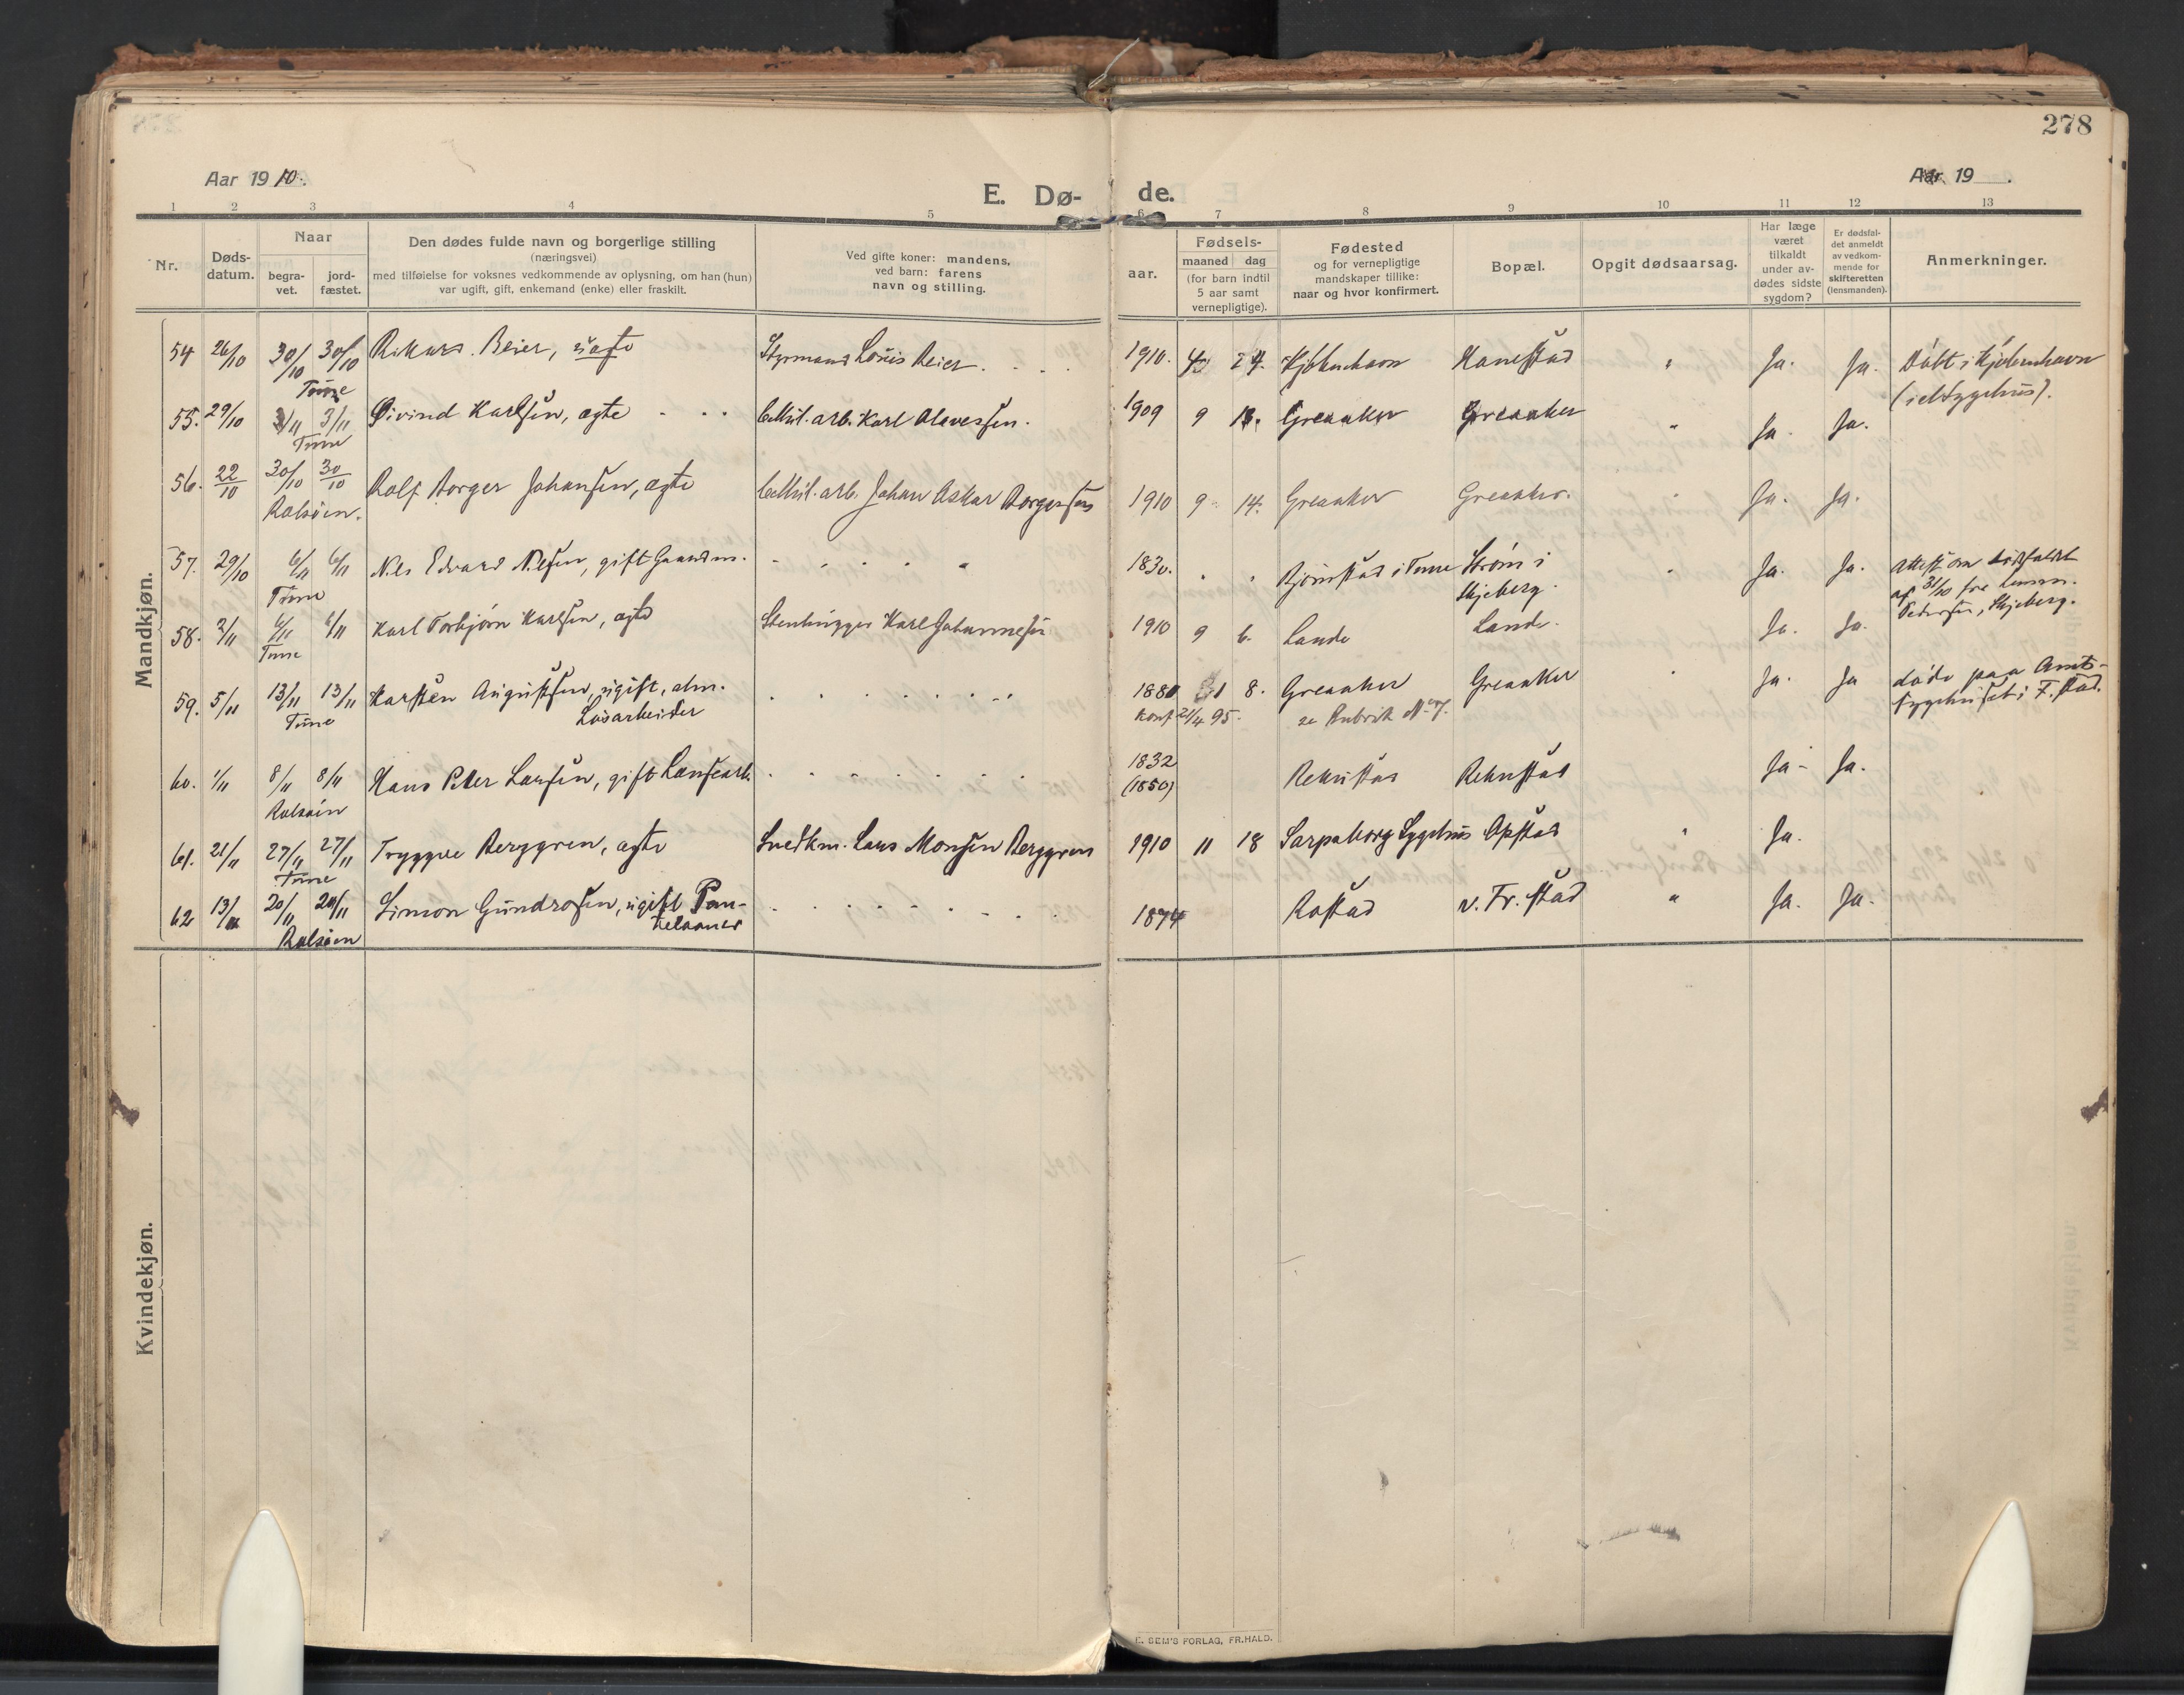 278
Aar 1910.
Aar 19 .
E. Dø- de.
1 2 3 4 5 6 7 8 9 10 11 12 13
Nr.
Døds-
datum.
Naar
begra-
vet.
jord-
fæstet.
Den dødes fulde navn og borgerlige stilling
(næringsvei)
med tilføielse for voksnes vedkommende av oplysning, om han (hun)
var ugift, gift, enkemand (enke) eller fraskilt.
Ved gifte koner: mandens,
ved barn: farens
navn og stilling.
aar.
Fødsels-
maaned dag
(for barn indtil
5 aar samt
vernepligtige).
Fødested
og for vernepligtige
mandskaper tillike:
naar og hvor konfirmert.
Bopæl.
Opgit dødsaarsag.
Har læge
været
tilkaldt
under av-
dødes sidste
sygdom?
Er dødsfal-
det anmeldt
av vedkom-
mende for
skifteretten
(lensmanden).
Anmerkninger.
Mandkjøn.
54 26/10 30/10 30/10 Rikard Beier, uægte Styrmand Louis Beier. 1910. 24. Kjøbenhavn Hanestad " Ja. Ja. Døbt i Kjøbenhavn
Tune
55. 29/10 3/11 3/11 Øivind Karlsen, ægte Cellul. arb. Karl Olavessen. 1909 9 13. Greaaker Greaaker " Ja. Ja.
Tune
56. 22/10 30/10 30/10 Rolf Borger Johansen, ægte Cellul. arb. Johan Oskar Borgersen 1910 9 14. Greaaker Greaaker. " Ja. Ja.
Rolsøen.
57. 29/10 6/11 6/11 Nils Edvard Nilsen, gift Gaardm. 1830. Bjørnstad i Tune Strøm i Ja. Ja. Attest om dødsfaldet
Tune Skjeberg. af 31/10 fra lensm.
Pedersen, Skjeberg.
58. 2/11 6/11 6/11 Karl Torbjørn Karlsen, ægte Stenhugger Karl Johannesen 1910 9 6. Lande Lande. Ja. Ja.
Tune
59. 5/11 13/11 13/11 Karsten Augustsen, ugift, alm. 1880 1 8. Greaaker Greaaker Ja. Ja døde paa Amts-
Tune Løsarbeider Konf 21/4 95. se Rubrik No 7. sygehuset i F.stad.
60. 1/11 8/11 8/11 Hans Peter Larsen, gift Lænsearb. 1832 Rekustad Rekustad Ja - Ja.
Rolsøen (1850)
61. 21/11 27/11 27/11 Tryggve Berggren, ægte Snedkm. Lars Monsen Berggren 1910 11 18 Sarpsborg Sygehus Opstad " Ja.
Tune
62 13/11 20/11 20/11 Simon Gundrosen, ugift Pan- 1874 Rostad v. Fr.stad " Ja. Ja.
Rolsøen telaaner
Kvindekjøn.
E. SEM'S FORLAG, FR.HALD.